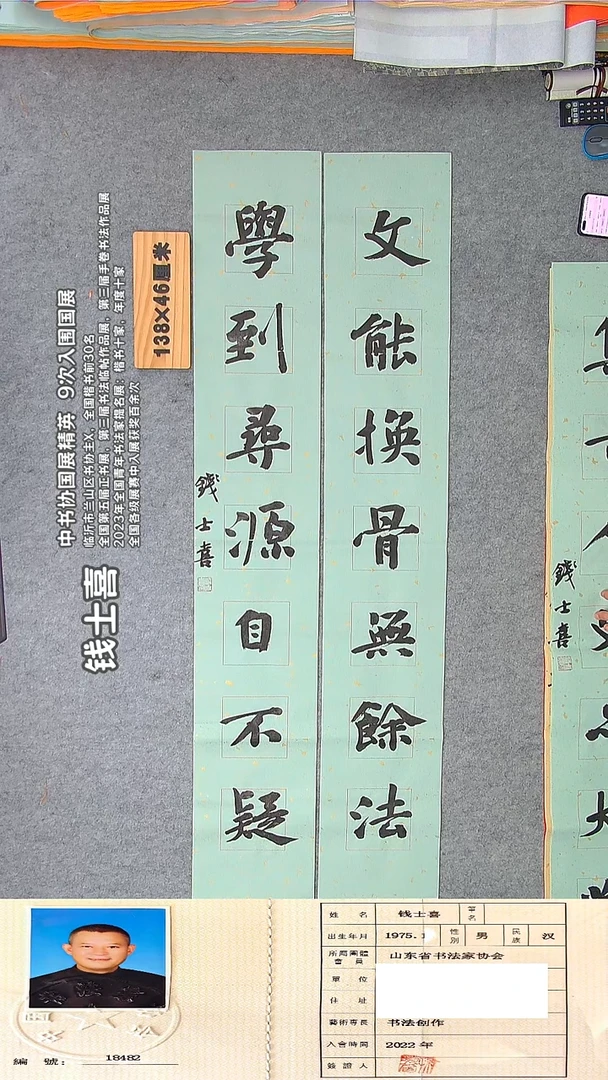 文能换骨無餘法
學到尋源自不疑
錢士喜
錢士喜
138×46厘米
钱士喜
中书协国展精英 9次入围国展
临沂市兰山区书协主X、全国楷书前30名
全国第五届正书展，第三届书法临帖作品展，第三届手卷书法作品展
2023年全国青年书法家提名展：楷书十家，年度十家
全国各级展赛中入展获奖百余次
編號：18482
姓名 钱士喜 筆名
出生年月 1975. 性別 男 民族 汉
所屬團體會員 山东省书法家协会
單位
住址
藝術專長 书法创作
入會時間 2022 年
簽證人